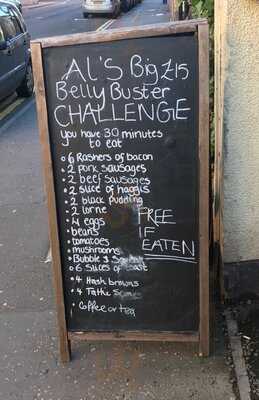 AL'S Big £15
Belly Buster
CHALLENGE
you have 30 minutes
to eat
• 6 Rashers of bacon
• 2 pork sausages
• 2 beef sausages
• 2 slice of haggis
• 2 black pudding
• 2 lorne
• 4 eggs
beans
• tomatoes
• mushrooms
• Bubble &
• 6 Slices of toast
• 4 Hash browns
• 4 Tattie
• Coffee or tea
FREE
IF
EATEN